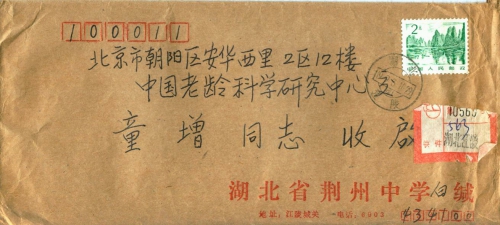 100011
2分
中国人民邮政
北京市朝阳区安华西里2区12楼
中国老龄科学研究中心
童增同志 收啟
563
湖北省荆州中学 白 缄
地址：江陵城关 电话：
434100